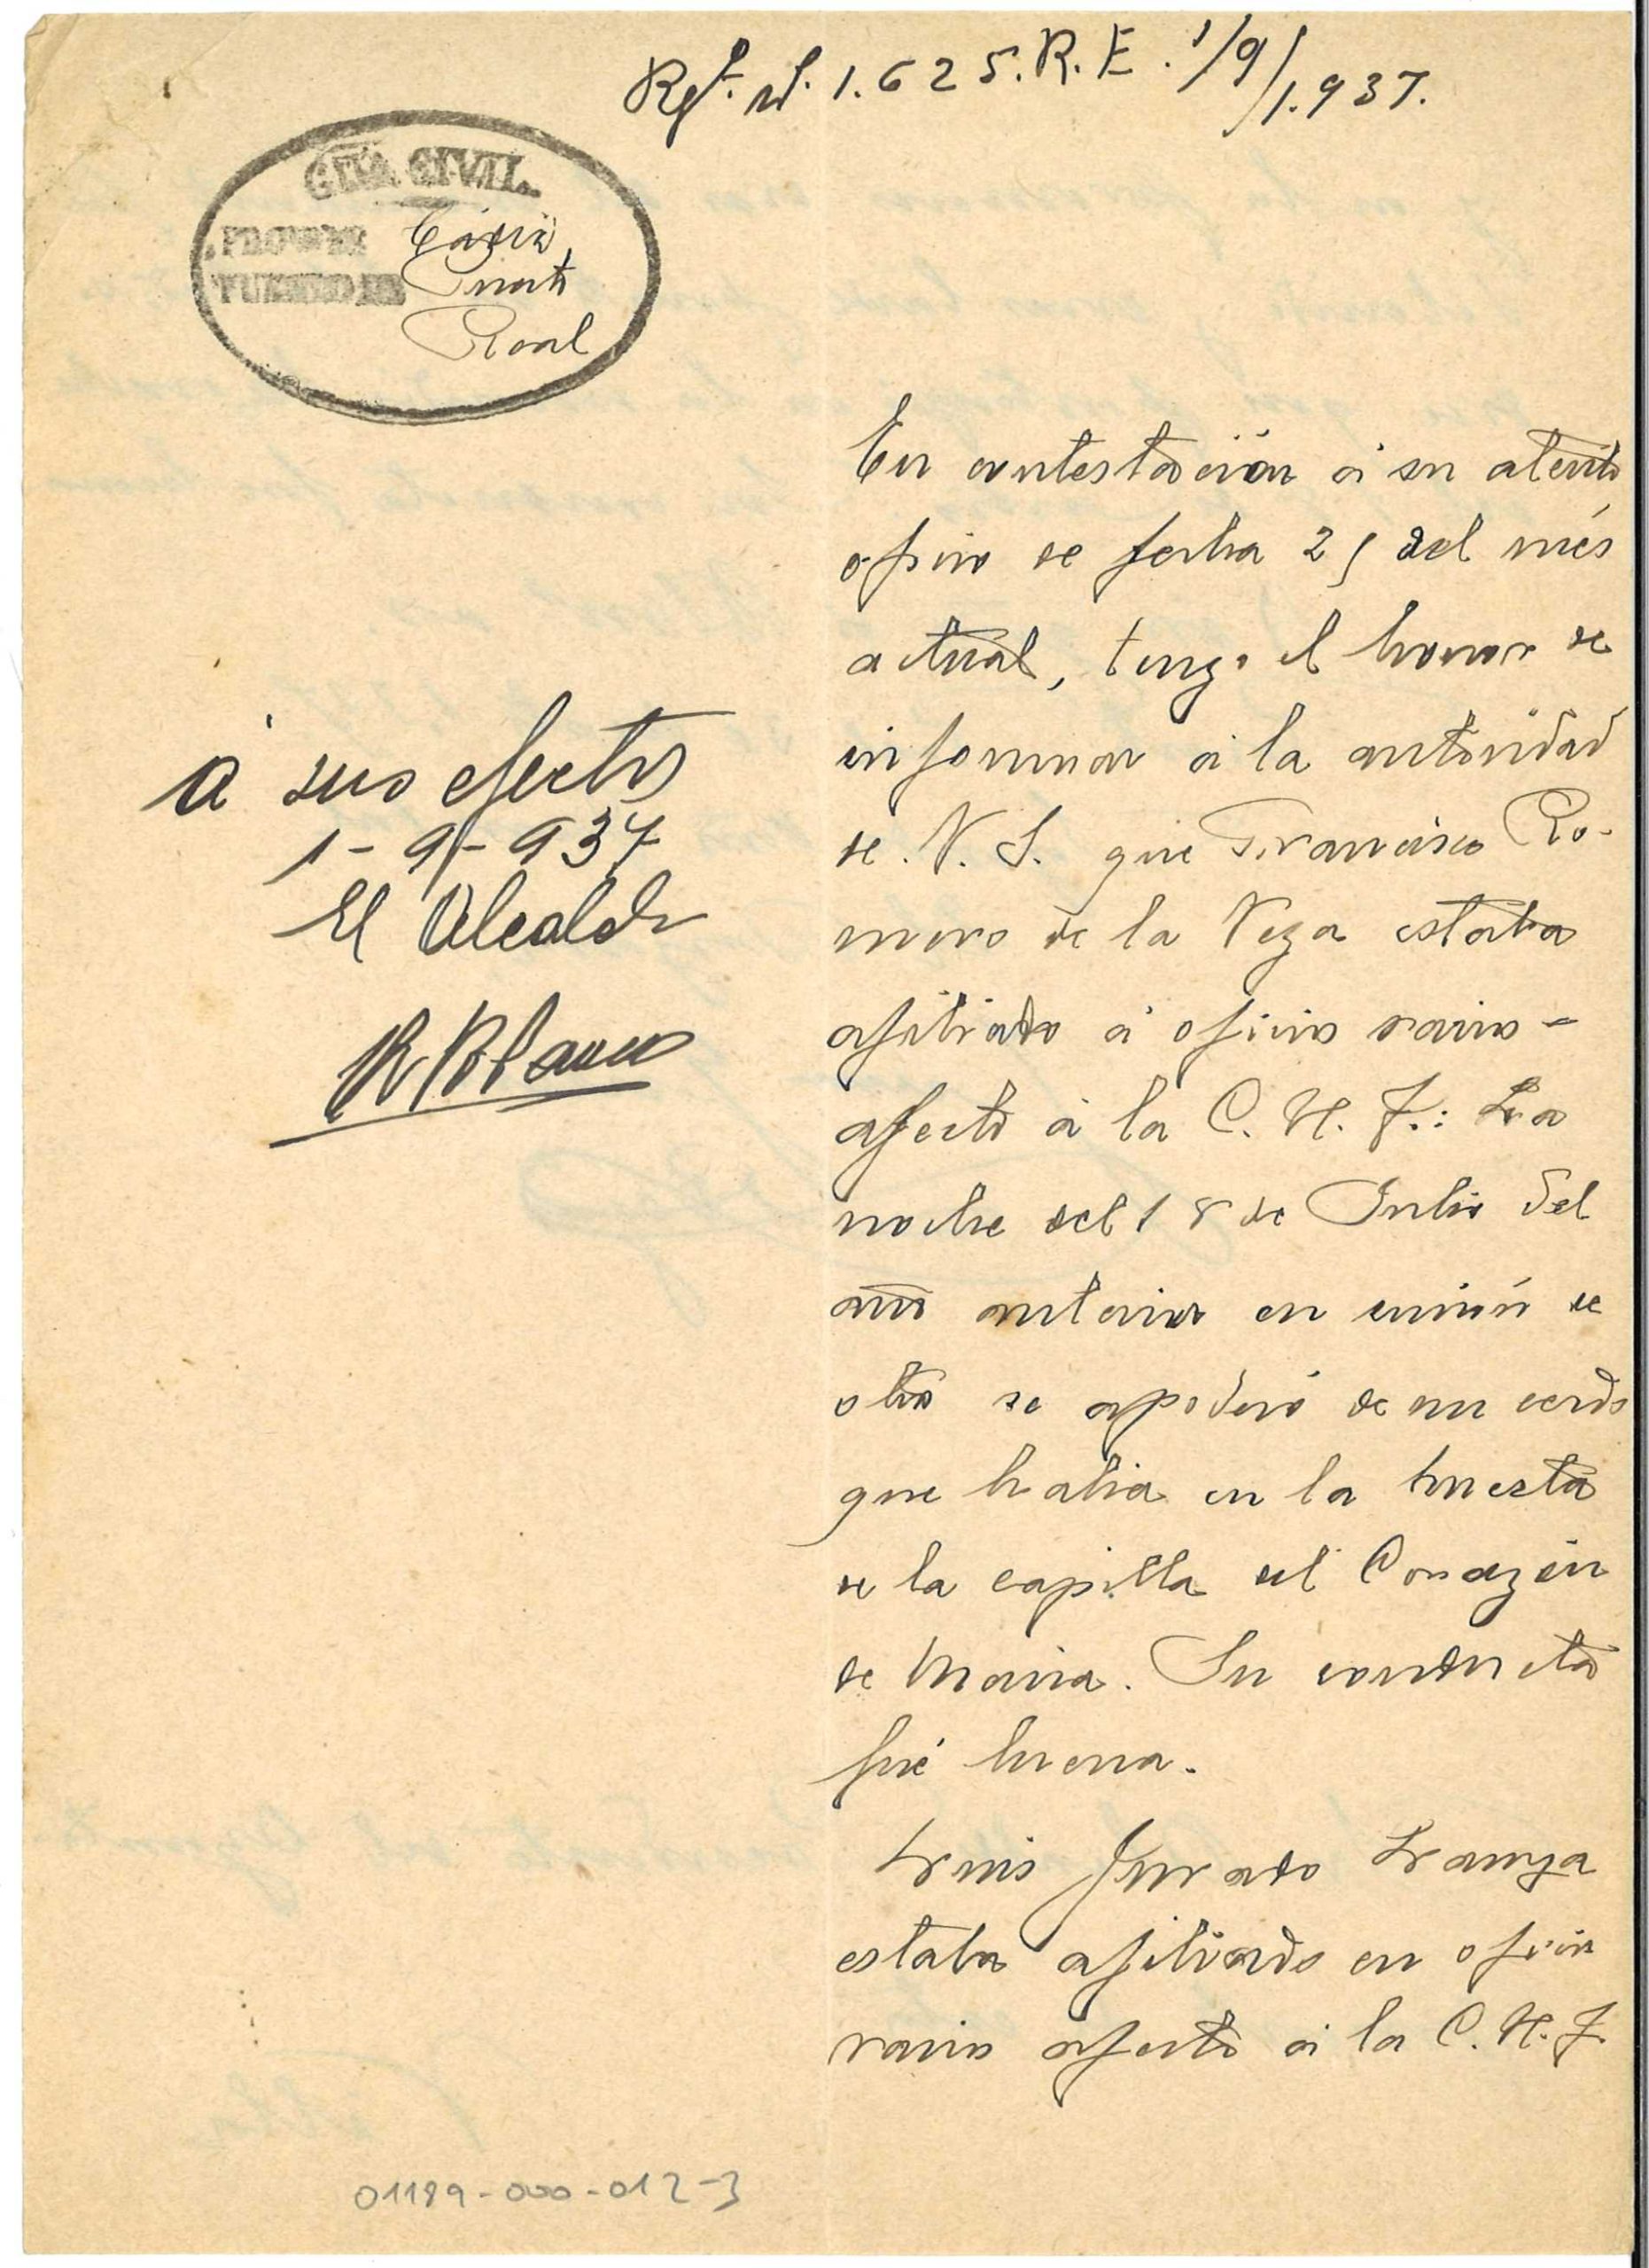 Ref. nº. 1.625. R.E. 1/9/1.937.
GUA. CIVIL.
PUESTO DE
Cádiz
Puerto
Real
En contestación á su atento
oficio de fecha 25 del més
actual, tengo el honor de
informar á la autoridad
de V. S. que Francisco Ro-
mero de la Vega estaba
afiliado á oficios varios-
afecto á la C. N. T.: La
noche del 18 de Julio del
año anterior en unión de
otro se apoderó de un cerdo
que habia en la huerta
de la capilla del Corazón
de Maria. Su conducta
fué buena.
Luis Jurado Granja
estaba afiliado en oficio
varios afecto á la C. N. T.
á sus efectos
1-9-937
El Alcalde
01189-000-012-3